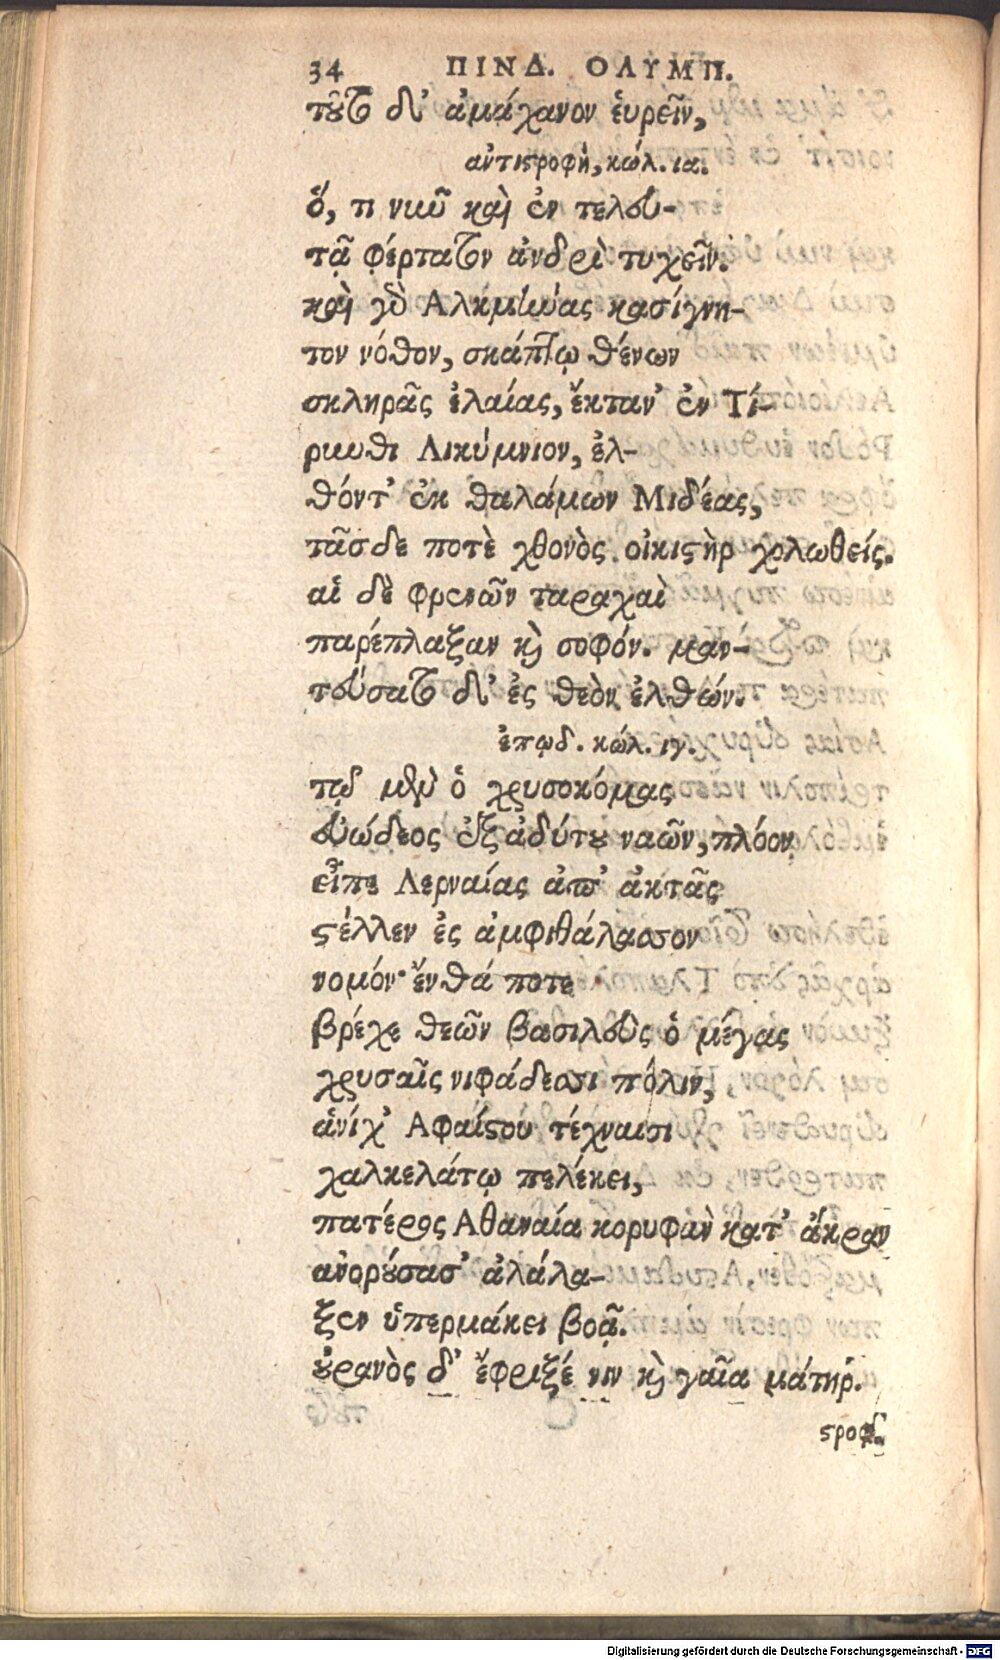 34 ΠΙΝΔ. ΟΛΥΜΠ.
τοῦτο δ' ἀμάχανον εὑρεῖν,
ἀντιστροφὴ, κώλ. ια.
ὅ, τι νιῦ καὶ ἐν τελευ-
τᾷ φέρτατον ἀνδρὶ τυχεῖν.
καὶ γὸ Αλκμήνας κασίγνη-
τον νόθον, σκάπτῳ θένων
σκληρᾶς ἐλαίας, ἔκταν' ἐν Τί-
ρυνθι Λικύμνιον, ἐλ-
θόντ' ἐκ θαλάμων Μιδέας,
τᾶσδε ποτὲ χθονὸς οἰκιστὴρ χολωθείς.
αἱ δὲ φρενῶν ταραχαὶ
παρέπλαξαν καὶ σοφόν. μαν-
τεύσατο δ' ἐς θεὸν ἐλθών.
ἐπῳδ. κώλ. ιγ.
τῷ μὲν ὁ χρυσοκόμας
εὐώδεος ἐξ ἀδύτου ναῶν, πλόον
εἶπε Λερναίας ἀπ' ἀκτᾶς
στέλλεν ἐς ἀμφιθάλασσον
νομόν· ἔνθά ποτε
βρέχε θεῶν βασιλεὺς ὁ μέγας
χρυσαῖς νιφάδεσσι πόλιν,
ἁνίχ' Αφαίστου τέχναισι
χαλκελάτῳ πελέκει,
πατέρος Αθαναία κορυφὰν κατ' ἄκραν
ἀνορούσασ' ἀλάλα-
ξεν ὑπερμάκει βοᾷ.
οὐρανὸς δ' ἔφριξέ νιν καὶ γαῖα μάτηρ.
στροφ.
Digitalisierung gefördert durch die Deutsche Forschungsgemeinschaft - DFG